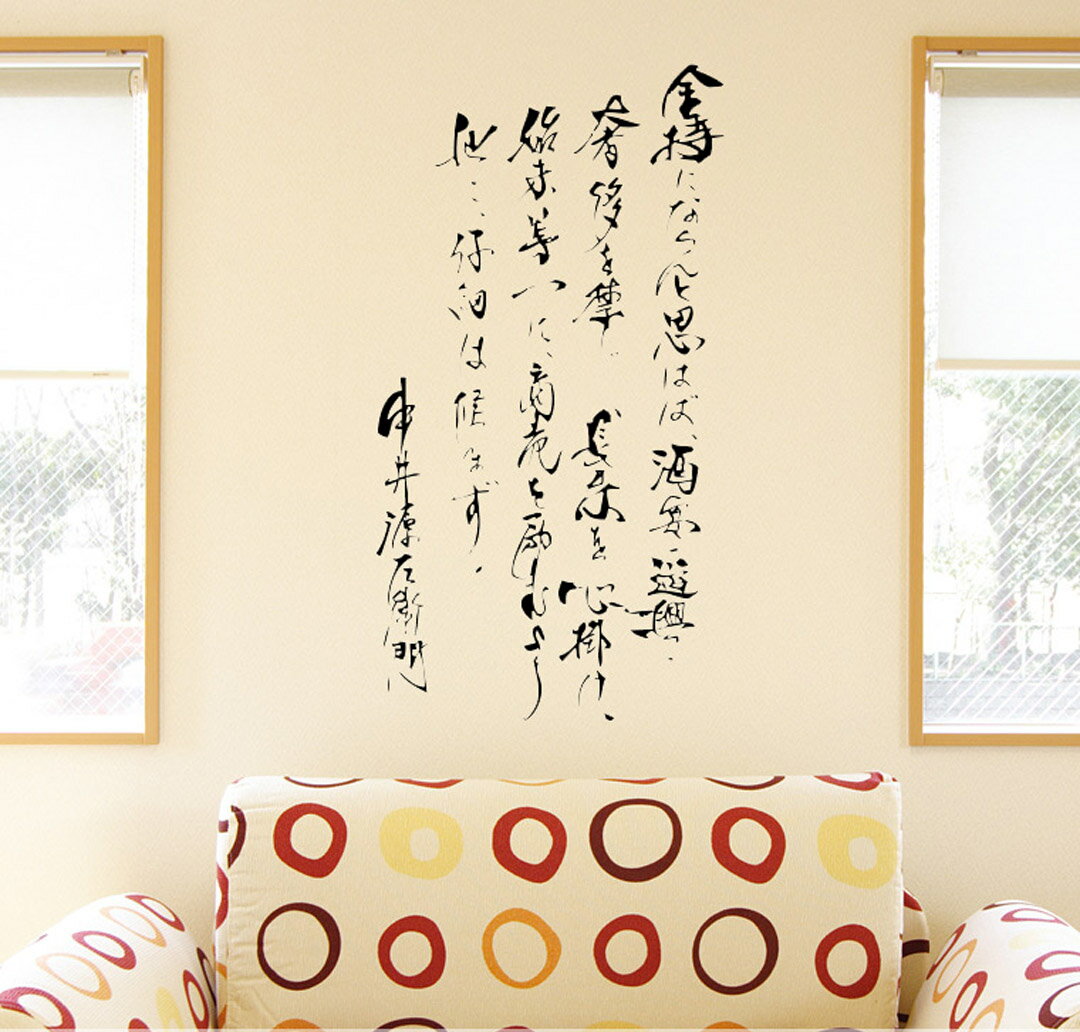 金持にならんと思はば、酒宴遊興
奢侈を禁じ 長寿を心掛け、
始末第一に、商売を励むより
他に、仔細は候はず。
中井源左衛門